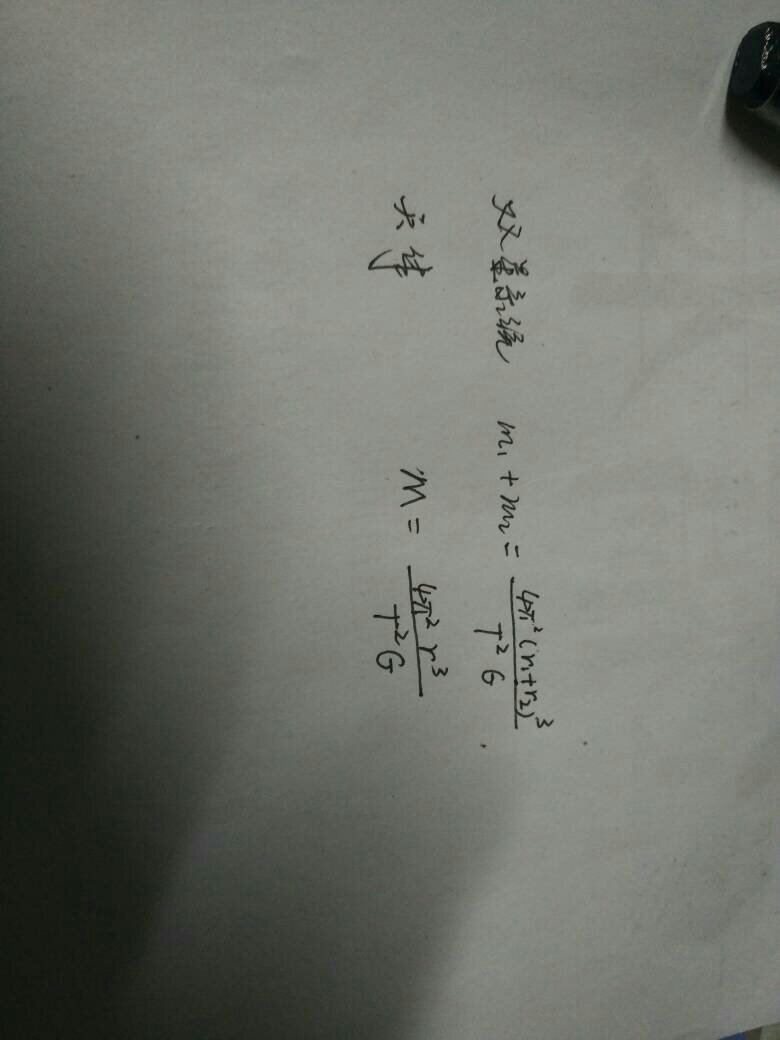 双星系统 m₁+m₂ = 4π²(r₁+r₂)³ / T²G
天体 M = 4π²r³ / T²G